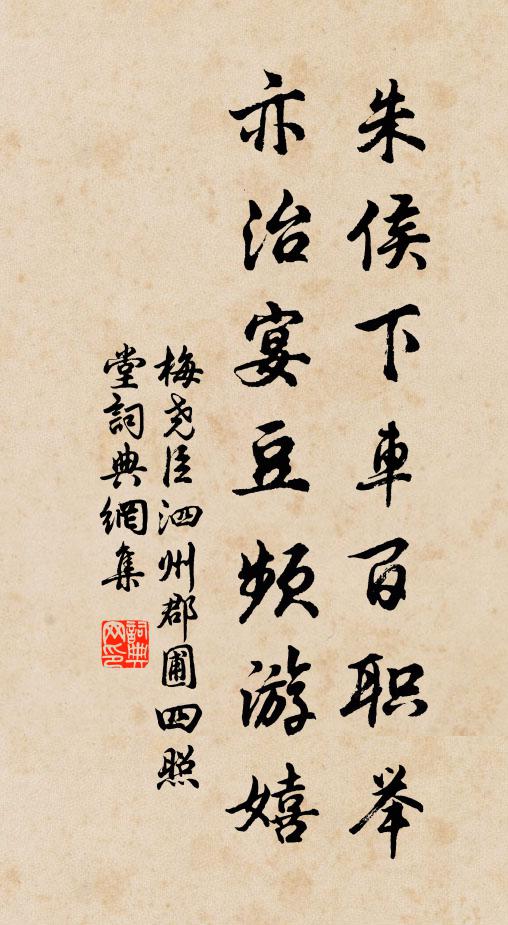 朱侯下车百职举
亦治宴豆频游嬉
梅尧臣泗州郡圃四照
堂词典網集
詞典網印